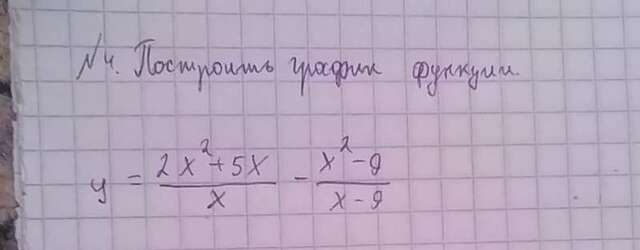 №4. Построить график функции.
y = (2x² + 5x)/x - (x² - 9)/(x - 9)